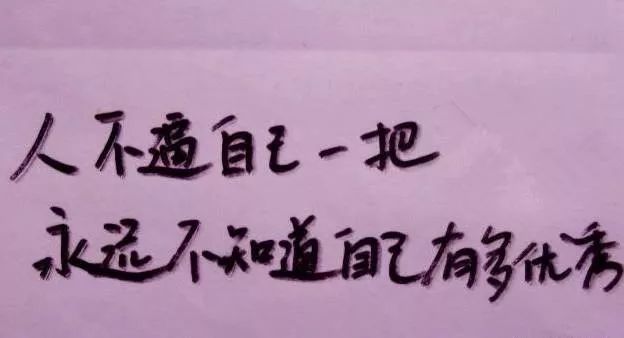 人不逼自己一把
永远不知道自己有多优秀